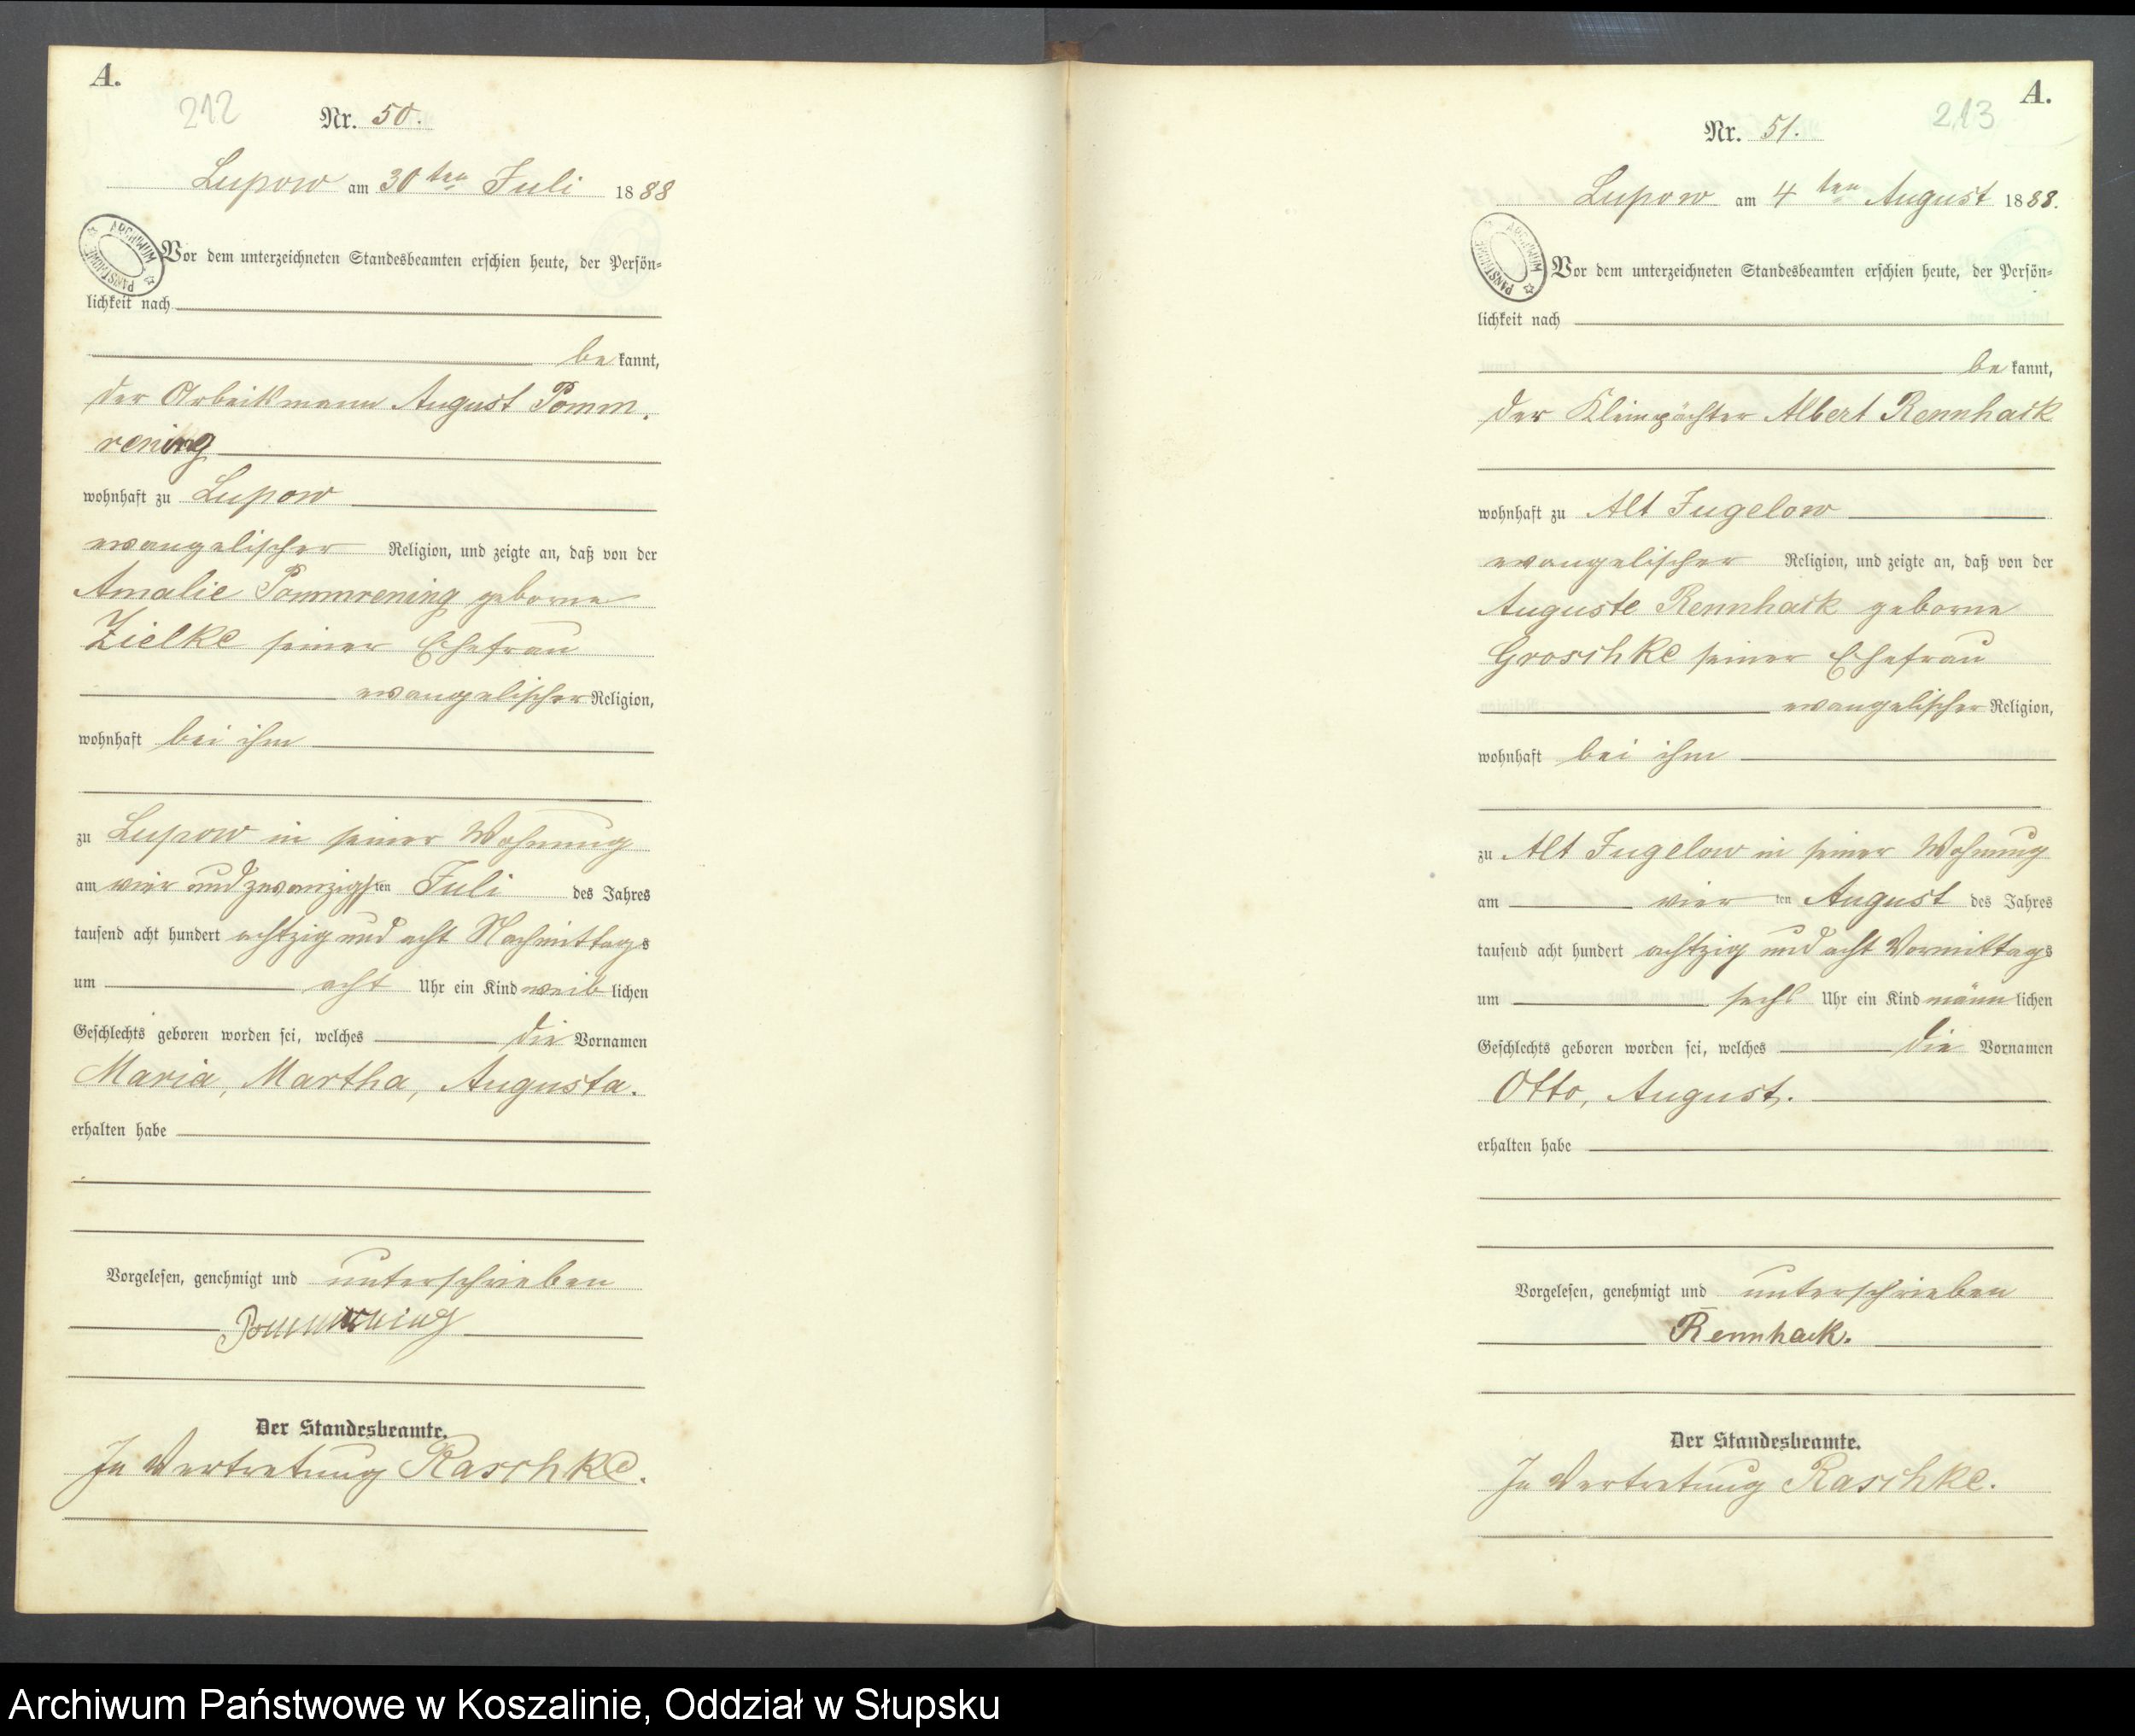 A.
212
Nr. 50.
Lupow am 30ten Juli 1888
ARCHIWUM PAŃSTWOWE
Vor dem unterzeichneten Standesbeamten erschien heute, der Persön=
lichkeit nach
be kannt,
der Arbeitsmann August Pomm,
rening
wohnhaft zu Lupow
evangelischer Religion, und zeigte an, daß von der
Amalie Pommrening geborne
Zielke seiner Ehefrau
evangelischer Religion,
wohnhaft bei ihm
zu Lupow in seiner Wohnung
am vier und zwanzigsten Juli des Jahres
tausend acht hundert achtzig und acht Nachmittags
um acht Uhr ein Kind weib lichen
Geschlechts geboren worden sei, welches die Vornamen
Maria, Martha, Augusta.
erhalten habe
Vorgelesen, genehmigt und unterschrieben
Pommrening
Der Standesbeamte.
In Vertretung Raschke.
A.
213
Nr. 51.
Lupow am 4ten August 1888.
ARCHIWUM PAŃSTWOWE
Vor dem unterzeichneten Standesbeamten erschien heute, der Persön=
lichkeit nach
be kannt,
der Kleinpächter Albert Rennhack
wohnhaft zu Alt Jugelow
evangelischer Religion, und zeigte an, daß von der
Auguste Rennhack geborne
Groschke seiner Ehefrau
evangelischer Religion,
wohnhaft bei ihm
zu Alt Jugelow in seiner Wohnung
am vier ten August des Jahres
tausend acht hundert achtzig und acht Vormittags
um sechs Uhr ein Kind männ lichen
Geschlechts geboren worden sei, welches die Vornamen
Otto, August.
erhalten habe
Vorgelesen, genehmigt und unterschrieben
Rennhack.
Der Standesbeamte.
In Vertretung Raschke.
Archiwum Państwowe w Koszalinie, Oddział w Słupsku